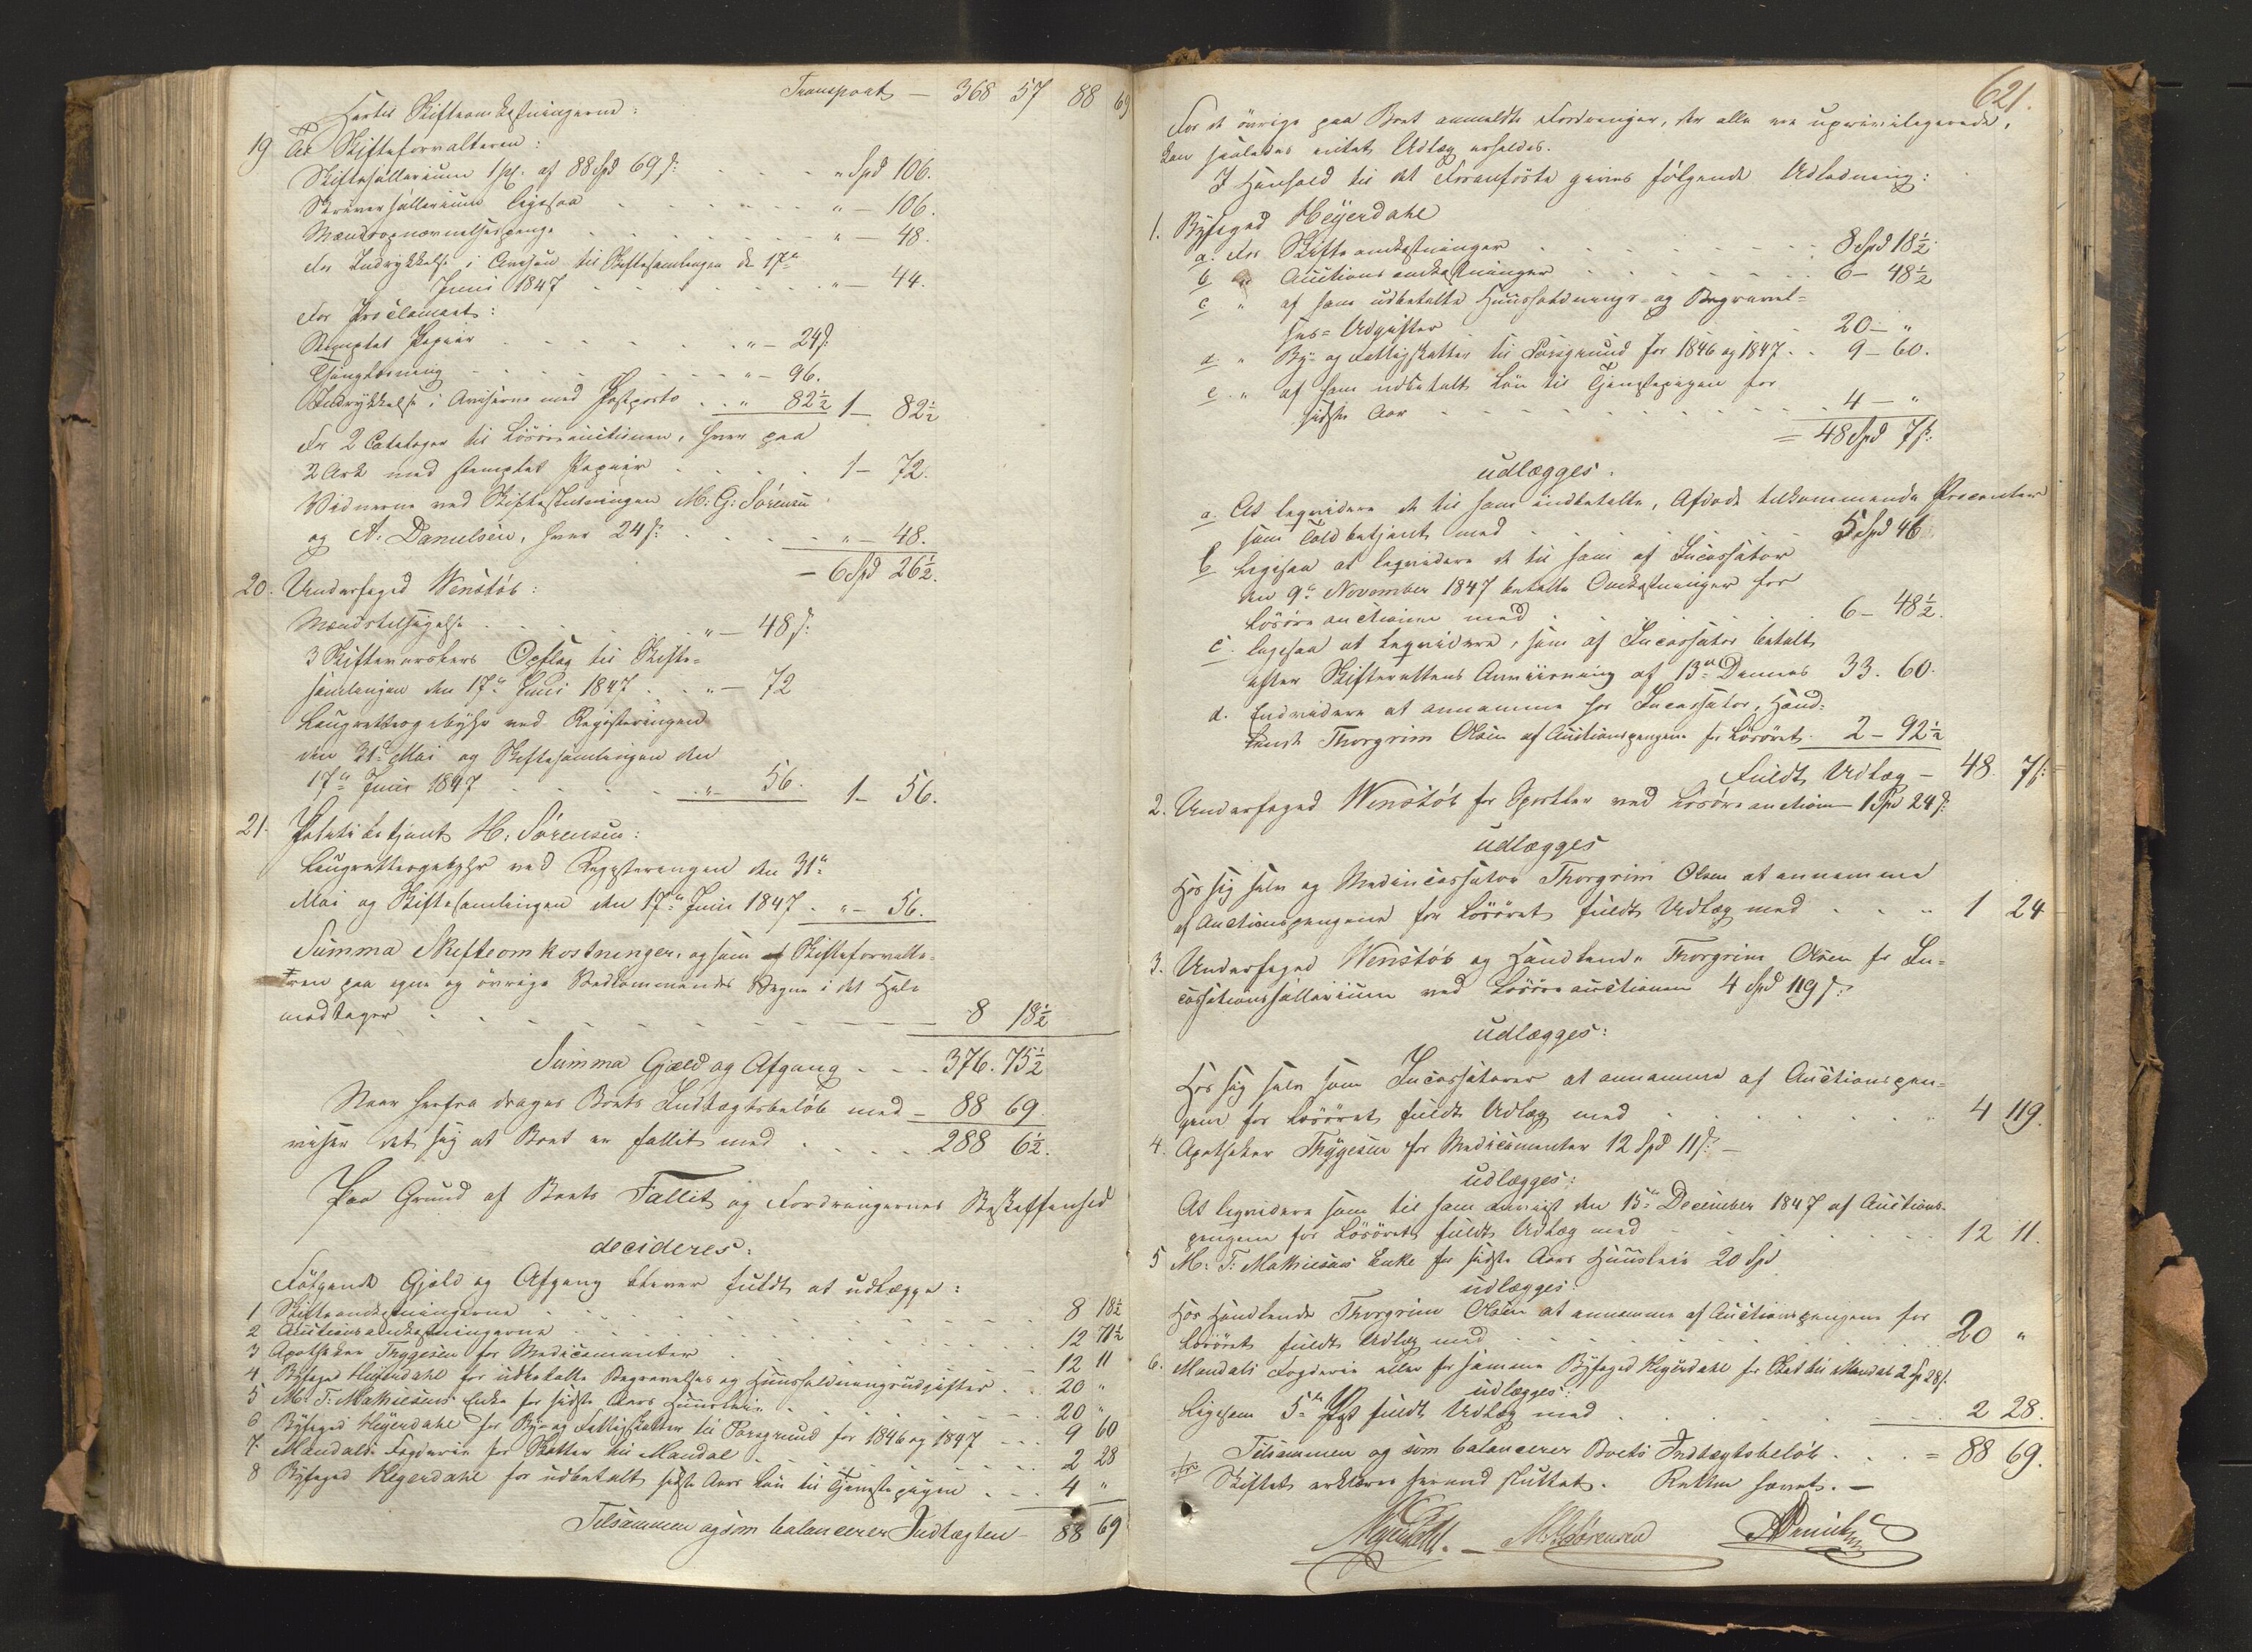 Transport — 368 57 88 69
Hertil Skifteomkostningerne:
19 At Skifteforvalteren:
Skiftesallarium 1 pC. af 88 Spd 69 s: " Spd 106.
Skriversallarium ligesaa " — 106.
Mændsopnævnelsespenge " — 48.
For Indrykkelse i Avisen til Skiftesamlingen d. 17de
Juni 1847 " — 44.
For Proclamaet:
Stemplet Papiir " — 24 s:
Thinglæsning " — 96.
Indrykkelse i Aviserne med Postporto " 82½ 1 — 82½
For 2 Cataloger til Lösöreauctionen, hver paa
2 Ark med stemplet Papiir 1 — 72.
Vidnerne ved Skifteslutningen M: G: Sörensen
og A: Danielsen, hver 24 s: " — 48.
— 6 Spd 26½.
20. Underfoged Wenstöb:
Mændstilsigelse " — 48 s:
3 Skifteverskers Opslag til Skifte-
samlingen den 17de Juni 1847 " — 72
Laugretteogebyhr ved Registeringen
den 31te Mai og Skiftesamlingen den
17de Juni 1847 " — 56. 1 — 56.
21. Politibetjent H: Sörensen:
Laugrettesgebyhr ved Registeringen den 31te
Mai og Skiftesamlingen den 17de Juni 1847 " — 56.
Summa Skifteomkostninger, og som af Skifteforvalte-
ren paa egne og övrige Vedkommendes Vegne i det Hele
modtager 8 18½
Summa Gjæld og Afgang 376. 75½
Naar herfra drages Boets Indtægtsbelöb med — 88 69.
viser det sig at Boet er fallit med 288 6½.
Paa Grund af Boets Fallit og Fordringernes Beskaffenhed
decideres:
Følgende Gjeld og Afgang bliver fuldt at udlægge:
1 Skifteomkostningerne 8 18½
2 Auctionsomkostningerne 12 71½
3 Apotheker Thygesen for Medicamenter 12 11
4 Byfoged Heijerdahl for udbetalte Begravelses og Huusholdningsudgifter 20 "
5 M: T: Mathiesens Enke for sidste Aars Huusleie 20 "
6 Byfoged Heijerdahl for By- og Fattigskatter til Porsgrund for 1846 og 1847 9 60
7. Mandals Fogderie for Skatter til Mandal 2 28
8 Byfoged Heijerdahl for udbetalt sidste Aars Lön til Tjenestepigen 4 "
Tilsammen og som balancerer Indtægten — 88 69
621.
For de övrige paa Boet anmeldte Fordringer, der alle ere uprivilegerede,
kan saaledes intet Udlæg erholdes.
I Henhold til det Foranförte gives fölgende Udlodning:
1. Byfoged Heijerdahl
a. For Skifteomkostninger 8 Spd 18½
b " Auctionsomkostninger 6 — 48½
c " af ham udbetalte Huusholdnings- og Begravel-
ses-Udgifter 20 — "
d. " By- og Fattigskatter til Porsgrund for 1846 og 1847 9 — 60.
e. " af ham udbetalt Lön til Tjenestepigen for
sidste Aar 4 — "
= 48 Spd 7 s:
udlægges.
a. At liqvidere de til ham indbetalte, Afdöde tilkommende Procenter
som Toldbetjent med 5 Spd 46
b Ligesaa at liqvidere de til ham af Incassator
den 9de November 1847 betalte Omkostninger for
Lösöreauctionen med 6 — 48½.
c. Ligesaa at liqvidere, som af Incassator betalt
efter Skifterettens Anviisning af 13de Dennes 33. 60.
d. Endvidere at annamme hos Incassator, Hand-
lende Thorgrim Olsen af Auctionspengene for Lösöret 2 — 92½
Fuldt Udlæg — 48. 7 s:
2. Underfoged Wenstöb for Sportler ved Lösöreauction 1 Spd 24 s:
udlægges
Hos sig selv og Medincassator Thorgrim Olsen at annamme
af Auctionspengene for Lösöret fuldt Udlæg med 1 24
3. Underfoged Wenstöb og Handlende Thorgrim Olsen for In-
cassationssallarium ved Lösöreauctionen 4 Spd 119 s:
udlægges:
Hos sig selv som Incassatorer at annamme af Auctionspen-
gene for Lösöret fuldt Udlæg med 4 119.
4. Apotheker Thygesen for Medicamenter 12 Spd 11 s: —
udlægges:
At liqvidere som til ham anviist den 15de December 1847 af Auctions-
pengene for Lösöret fuldt Udlæg med 12 11.
5 M: T: Mathiesens Enke for sidste Aars Huusleie 20 Spd
udlægges:
Hos Handlende Thorgrim Olsen at annamme af Auctionspengene for
Lösöret fuldt Udlæg med 20 "
6. Mandals Fogderie eller for samme Byfoged Heijerdahl for Skat til Mandal 2 Sp 28 s.
udlægges:
Ligesom 5te Post fuldt Udlæg med 2 28.
Tilsammen og som balancerer Boets Indtægtsbelöb = 88 69.
Skiftet erklæres herved sluttet. Retten hævet. —
Heijerdahl. — MGSörensen ADanielsen